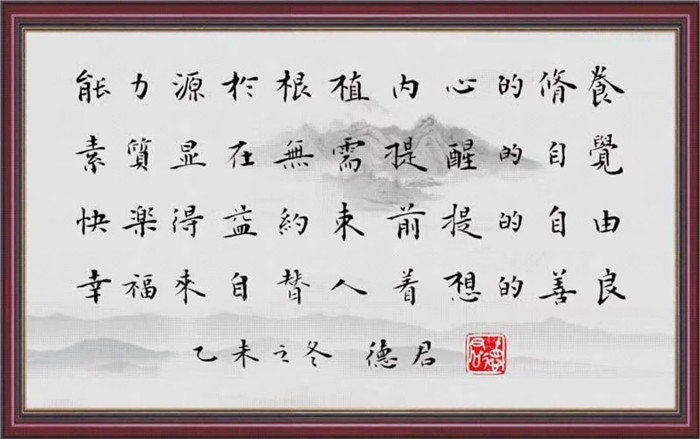 能力源於根植内心的脩養
素質显在無需提醒的自覺
快樂得益約束前提的自由
幸福來自替人着想的善良
乙未之冬 德君
德君